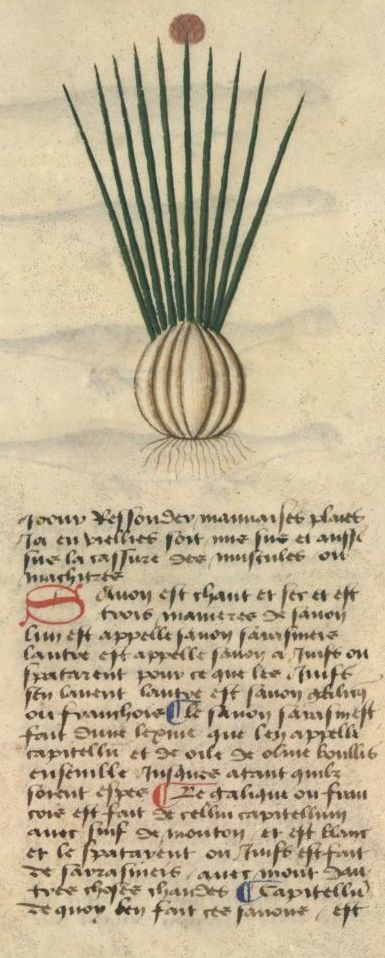 pour Ressouder mauuaises plaies
Ja en viellies soit mis sus et aussi
sus la cassure des muscules ou
machures
Sauon est chaut et sec et est
trois manieres de sauon
lun est appelle sauon sarasinois
lautre est appelle sauon a Juifs ou
spatarent pour ce que les Juifs
sen lauent lautre est sauon galicu
ou franchois ¶ Le sauon sarasin est
fait dune lexiue que len appelle
capitellu et de oile de oliue boullis
ensemble Jusques atant quilz
soient espes ¶ Le galique ou fran
cois est fait de cellui capitellum
auec suif de mouton et est blanc
et le spatarent ou Juifs est fait
de sarrasinois auec mont dau
tres choses chaudes ¶ Capitellu
de quoy len fait ces sauons est